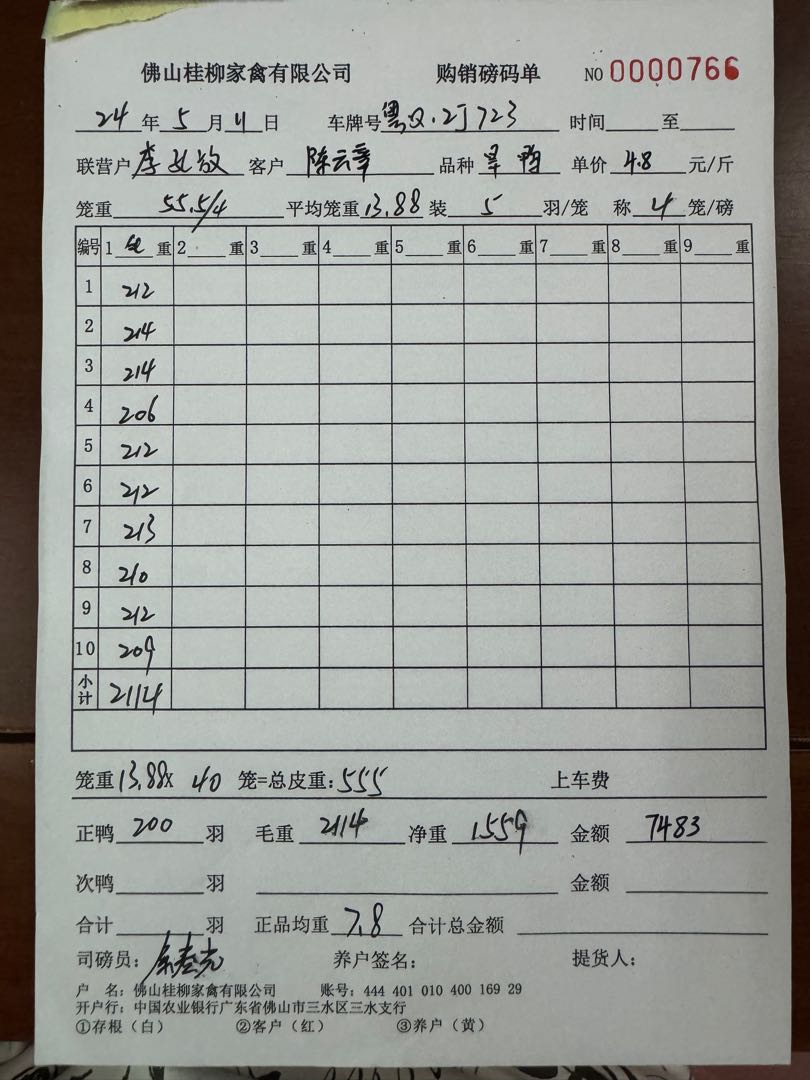 佛山桂柳家禽有限公司 购销磅码单 NO 0000766
24 年 5 月 11 日 车牌号 2J723 时间 至
联营户 李 客户 陈云章 品种 单价 4.8 元/斤
笼重 55.5/4 平均笼重 13.88 装 5 羽/笼 称 4 笼/磅
编号 1 重 2 重 3 重 4 重 5 重 6 重 7 重 8 重 9 重
1 212
2 214
3 214
4 206
5 212
6 212
7 213
8 210
9 212
10 209
小计 2114
笼重 13.88 X 40 笼=总皮重: 555 上车费
正鸭 200 羽 毛重 2114 净重 1559 金额 7483
次鸭 羽 金额
合计 羽 正品均重 7.8 合计总金额
司磅员: 养户签名: 提货人:
户 名: 佛山桂柳家禽有限公司 账号: 444 401 010 400 169 29
开户行: 中国农业银行广东省佛山市三水区三水支行
①存根（白） ②客户（红） ③养户（黄）